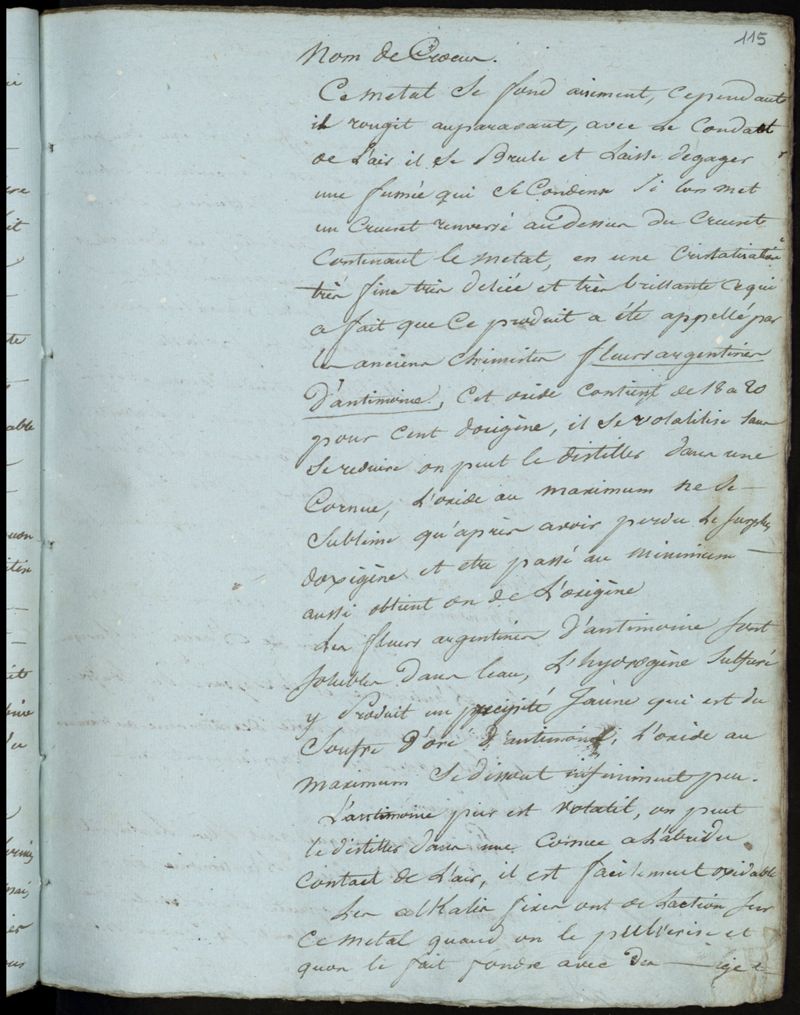 115
Nom de
Ce metal se fond aisement, cependant
il rougit auparavant, avec le Contact
de L'air il se Brule et Laisse degager
une fumée qui se Condense Si l'on met
un Creuset renversé au dessus du Creuset
Contenant le metal, en une Cristalisation
très fine très deliée et très brillante ce qui
a fait que Ce produit a été appellé par
les anciens chimistes fleurs argentines
D'antimoine, Cet oxide contient de 18 a 20
pour cent doxigène, il se volatilise sans
se reduire on peut le distiller dans une
Cornue, L'oxide au maximum ne se
Sublime qu'après avoir perdu le surplus
doxigène et etre passé au minimum
aussi obtient on de L'oxigène
Les fleurs argentines D'antimoine sont
solubles dans leau, L'hydrogène Sulfuré
y Produit un precipité Jaune qui est du
Soufre D'oré D'antimoine, L'oxide au
maximum Se dissout infiniment peu.
L'antimoine pur est volatil, on peut
le distiller dans une Cornue a L'abri du
Contact de L'air, il est facilement oxidable
Les alkalis fixes ont de Laction sur
Ce metal quand on le pulverise et
quon le fait fondre avec des